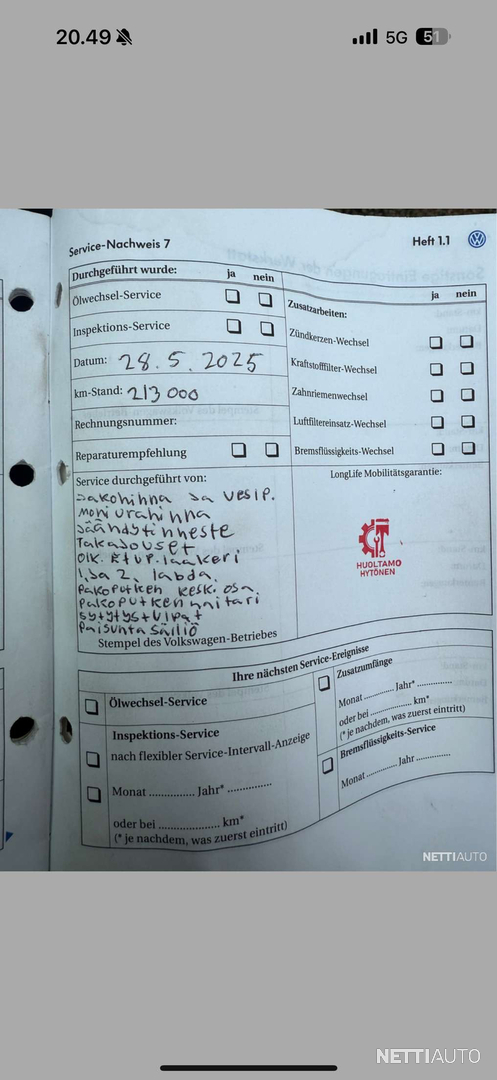 20.49
5G
51
Service-Nachweis 7
Heft 1.1
Durchgeführt wurde:
ja nein
Ölwechsel-Service
Inspektions-Service
Datum: 28.5.2025
km-Stand: 213 000
Rechnungsnummer:
Reparaturempfehlung
ja nein
Zusatzarbeiten:
Zündkerzen-Wechsel
Kraftstofffilter-Wechsel
Zahnriemenwechsel
Luftfiltereinsatz-Wechsel
Bremsflüssigkeits-Wechsel
Service durchgeführt von:
Jakohihna Ja vesip.
moniurahihna
Jäähdytinneste
Takajouset
Oik. Etup. laakeri
1, Ja 2, labda.
Pakoputken kesk. osa.
Pakoputken haitari
Sytytystulpat
Paisunta säiliö
Stempel des Volkswagen-Betriebes
LongLife Mobilitätsgarantie:
HUOLTAMO
HYTÖNEN
Ihre nächsten Service-Ereignisse
Ölwechsel-Service
Inspektions-Service
nach flexibler Service-Intervall-Anzeige
Monat .............. Jahr* ..............
oder bei .................... km*
(* je nachdem, was zuerst eintritt)
Zusatzumfänge
Monat ........... Jahr* ..............
oder bei ................ km*
(* je nachdem, was zuerst eintritt)
Bremsflüssigkeits-Service
Monat ............ Jahr ..............
NETTIAUTO
NETTIAUTO